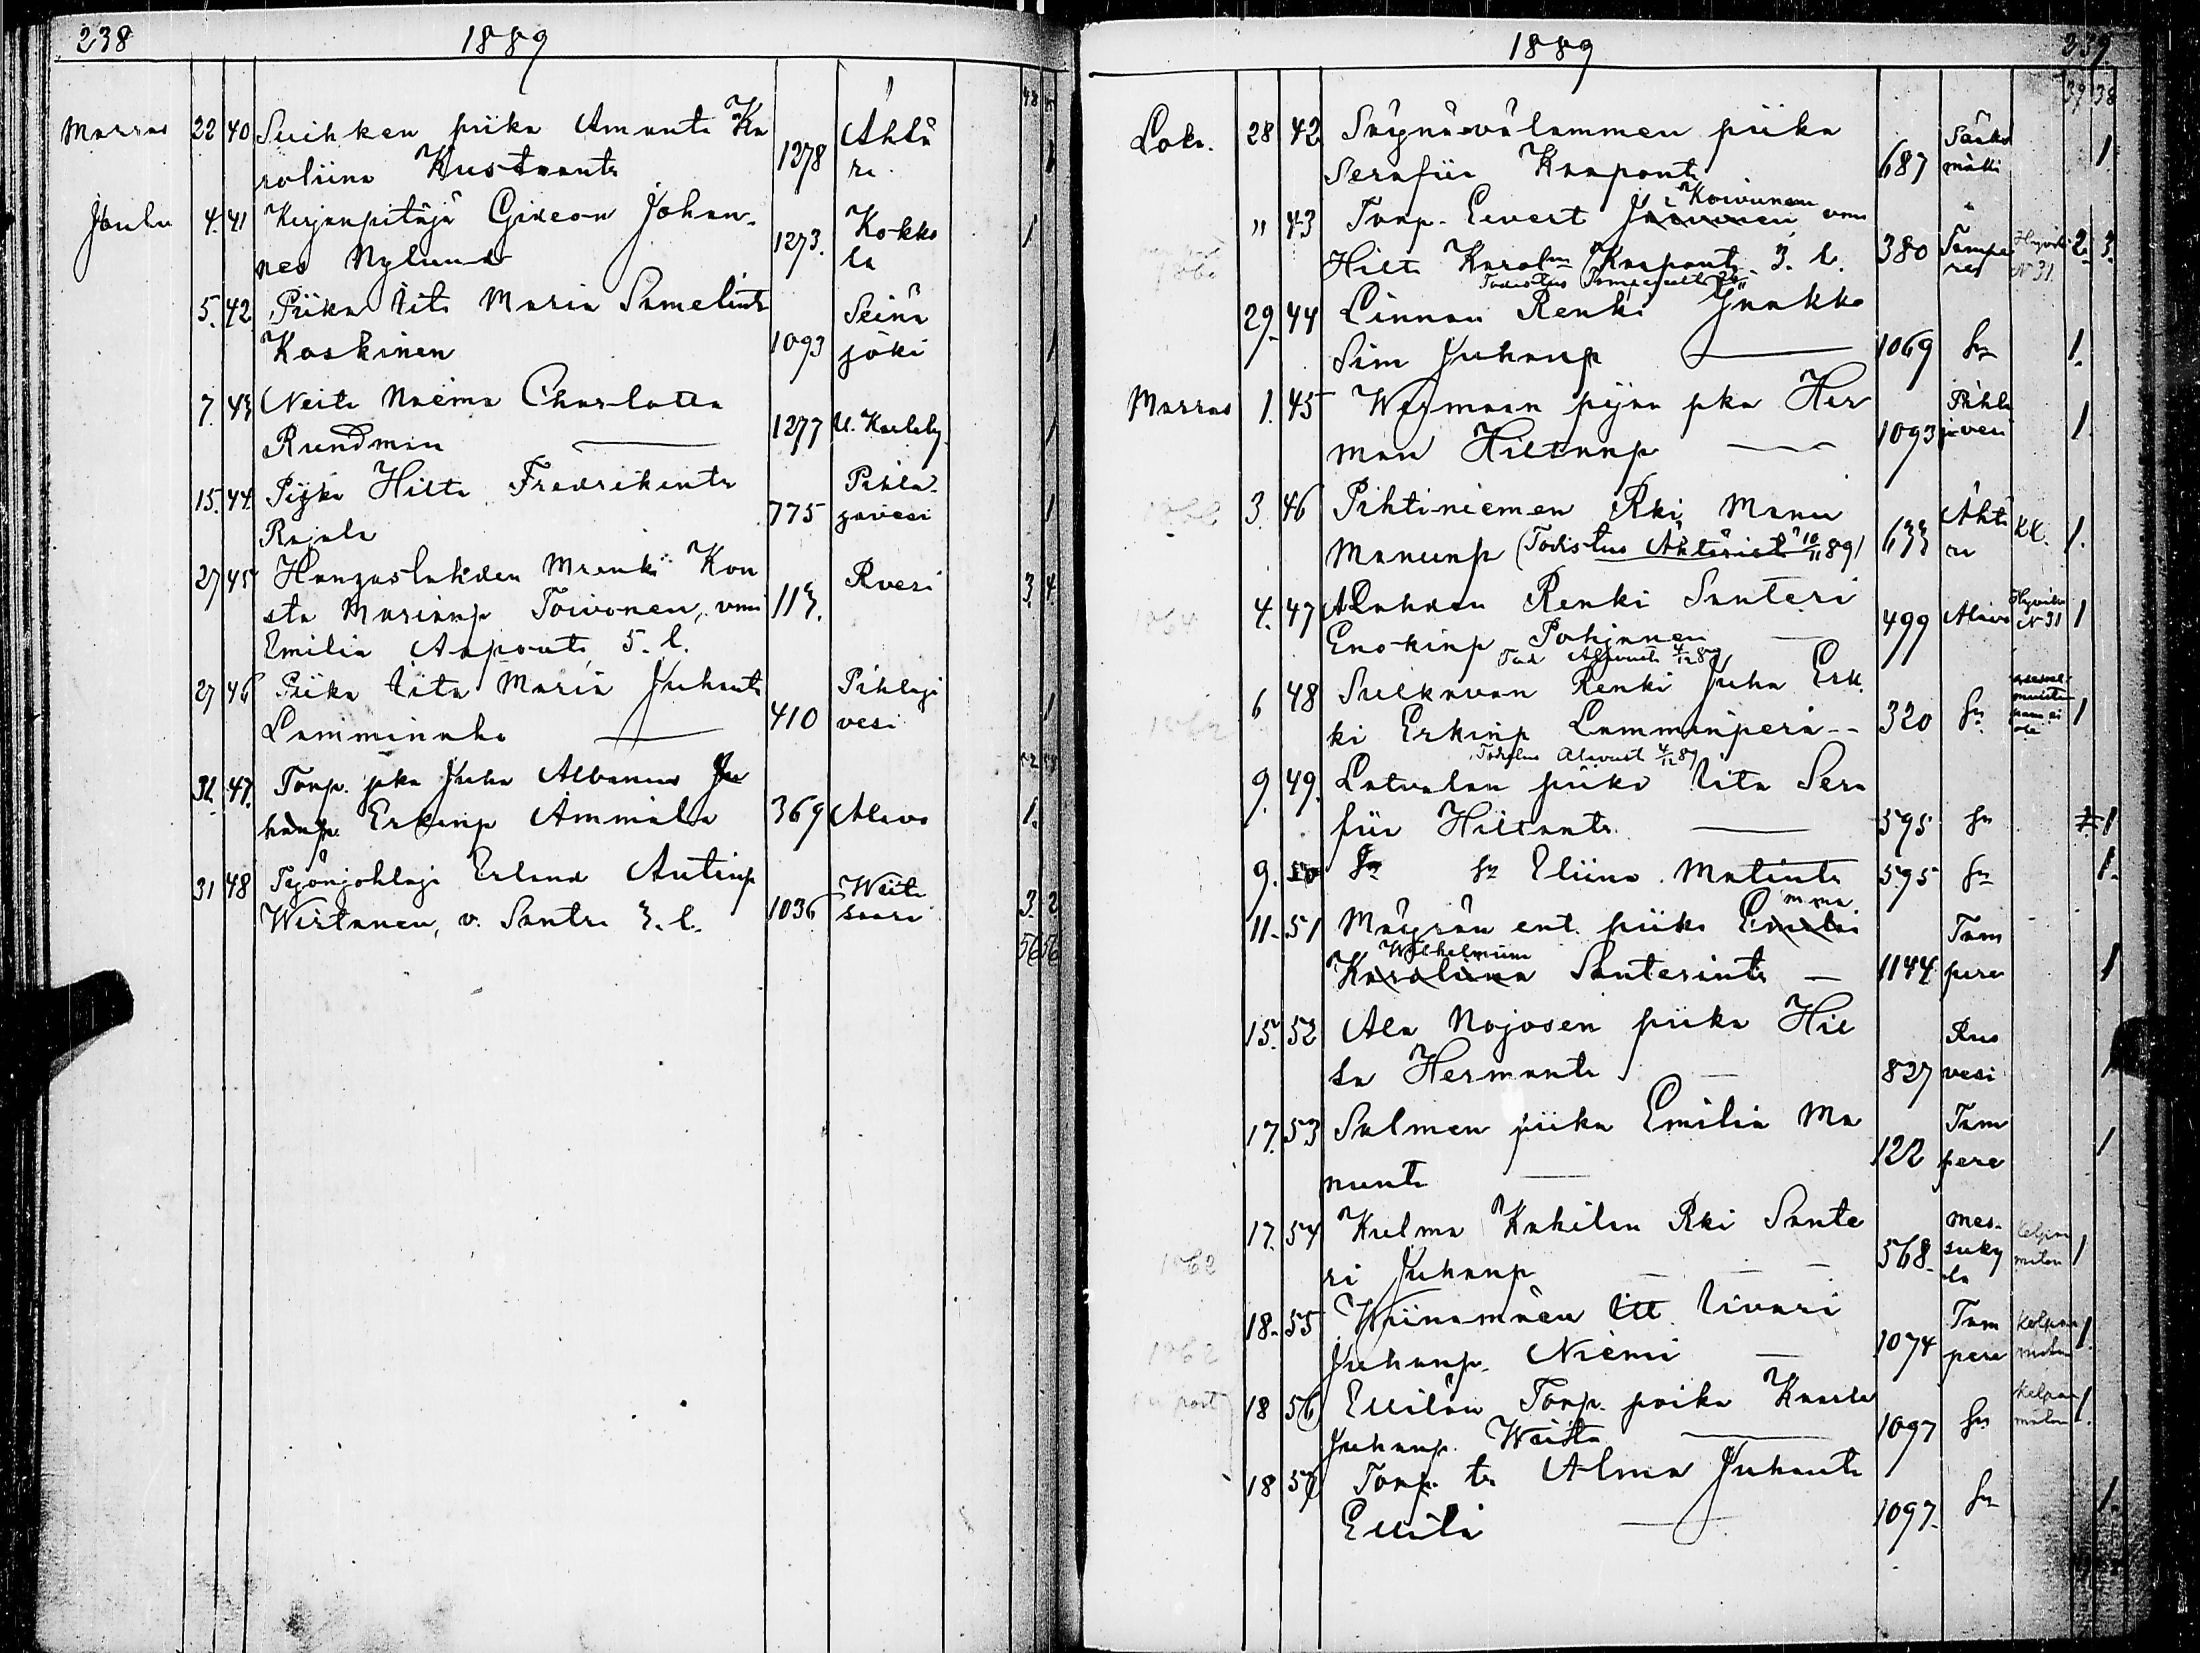 238
1889
48
Marras 22 40 Suihkon piika Amanta Ka
roliina Kustaant. 1278 Ähtä
ri. 1
Joulu 4. 41 Kirjanpitäjä Gideon Johan-
nes Nylund 1273. Kokko
la 1
5. 42 Piika Iita Maria Samelint.
Koskinen 1093 Seinä
joki 1
7. 43 Neiti Naëma Charlotta
Rundman 1277 U. Karleby 1
15. 44. Piika Hilta Fredrikintr
Rajala 775 Pihla-
javesi 1
27 45 Hangaslahden Mranki Kon
sta Marianp Toivonen, vmo 113. Rvesi 3. 4.
Emilia Aapont. 5. l.
27 46 Piika Iita Maria Juhant.
Lamminaho 410 Pihlaja
vesi 1
31. 47. Torp. pka Juha Albanus Ju
hanp. Erkinp Ammälä 369 Alavo 1.
31 48 Työnjohtaja Erland Antinp
Wirtanen, v. Santra 3. l. 1036 Wiita
saari 3. 2
56 56
1889
239
39 38
Loka. 28 42 Säynävälammen piika
Serafiia Kaapont. 687 Sääks
mäki 1
" 43 Torp. Eevert Koivunen vmo
Hilta Karolna Kaapont. 3. l. 380 Tampe
res N 31. 2. 3.
Todistus Tampereelta
29. 44 Linnan Renki Jaakko
Sim Juhanp 1069 Sn 1.
Marras 1. 45 Wegman pijan pka Her
man Hiltanp 1093 Pihla
javesi 1.
3. 46 Pihtiniemen Rki Manu
Manunp (Todistus Ähtäristä 10/11 89) 633 Ähtä
ri KK. 1.
4. 47 Alahden Renki Santeri
Enokinp Pohjanen 499 Alavo N 31 1
Tod Alavust. 4/12 89
6 48 Sulkavan Renki Juha Erk
ki Erkinp Lammänperä-- 320 Sn 1
Todistus Alavust 4/12 89
9. 49. Latvalan piika Iita Sera
fiia Hiltantr. 595 Sn 1
9. 50 Sn Sn Eliina Matintr 595 Sn 1.
11. 51 Mäyrän ent. piika Emma
Wilhelmiina
Karoliina Santerintr 1144 Tam
pere 1
15. 52 Ala Nojosen piika Hil
ta Hermantr 827 Ruo
vesi 1
17. 53 Salmen piika Emilia Ma
nuntr 122 Tam
pere 1
17. 54 Kulma Kahilan Rki Sante
ri Juhanp 568 Mes-
suky
lä 1
18. 55 Wiinamäen Itl. Iivari
Juhanp. Niemi 1074 Tam
pere 1.
18 56 Ellilän Torp. poika Kaarle
Juhanp. Wiita 1097 Sn 1.
18 57 Torp. tr Alma Juhantr
Ellilä 1097. Sn 1.